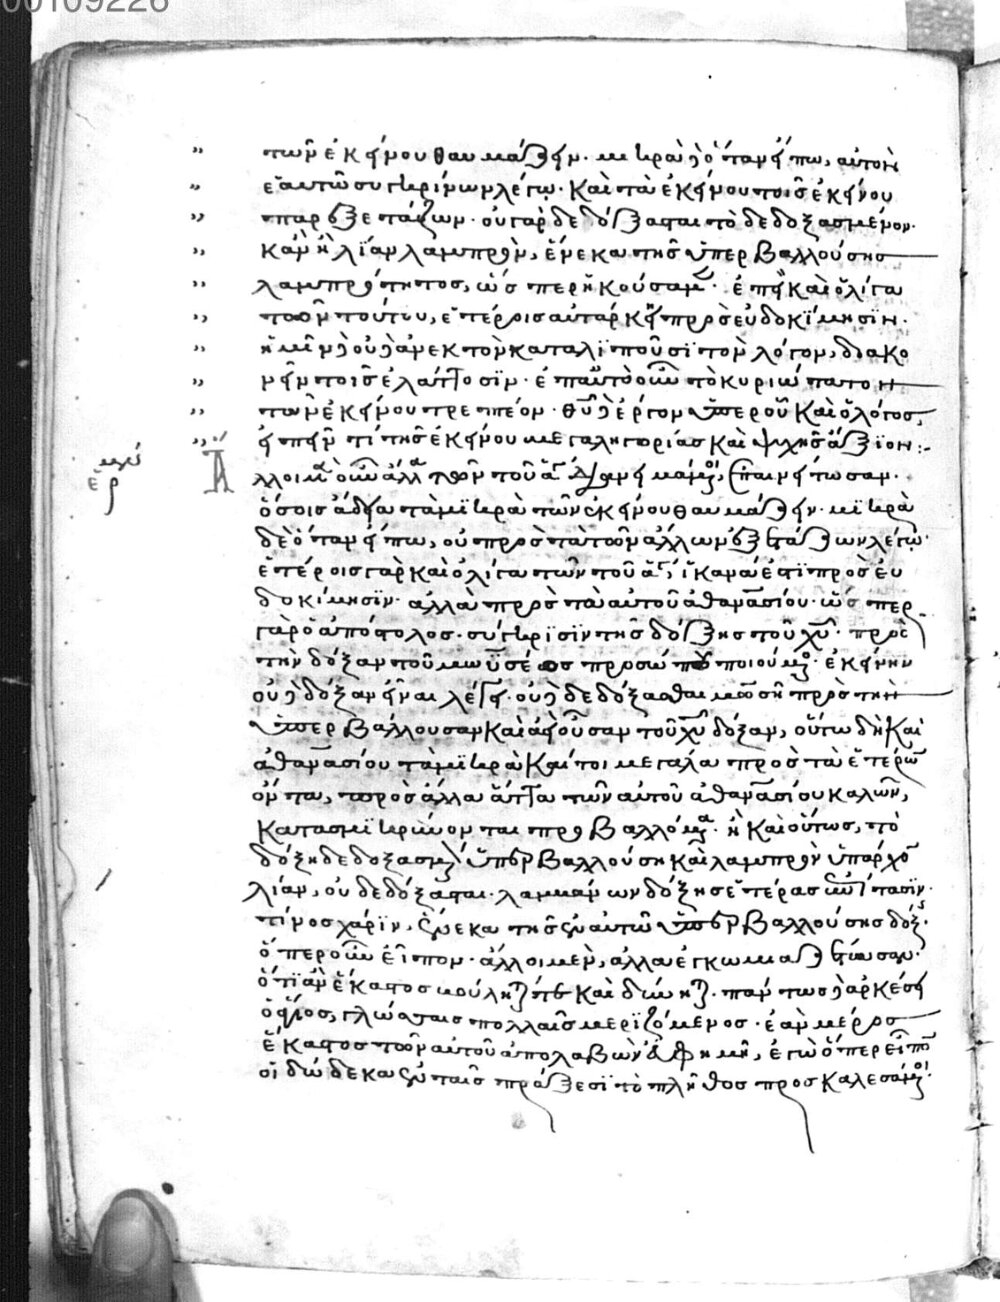 00109226
τῶν ἐκείνου θαυμάζειν. μικρὰ δ' ὅταν εἴπω, αὐτὸν
ἑαυτῶ συγκρίνων λέγω. καὶ τὰ ἐκείνου τοῖς ἐκείνου
παρεξετάζων. οὐ γὰρ δεδόξασται τὸ δεδοξασμένον.
κἂν ἦ λίαν λαμπρὸν, ἕνεκα τῆς ὑπερβαλλούσης
λαμπρότητος, ὥσπερ ἠκούσαμεν. ἐπεὶ καὶ ὀλίγα
τῶν τούτου, ἑτέροις αὐτάρκη πρὸς εὐδοκίμησιν.
ἡμῖν δ' οὐδ' ἀνεκτὸν καταλιποῦσι τὸν λόγον, διακο
νεῖν τοῖς ἐλάττοσιν. ἐπ' αὐτὸ οὖν τὸ κυριώτατον
τῶν ἐκείνου τρεπτέον. θεοῦ δ' ἔργον ὑπὲρ οὗ καὶ ὁ λόγος,
εἰπεῖν τι τῆς ἐκείνου μεγαληγορίας καὶ ψυχῆς ἄξιον:
ἑρμ
Ἄλλοι μὲν οὖν ἄλλα τῶν τοῦ ἁγίου
ὅσοις ἄδεια τὰ μικρὰ τῶν ἐκείνου θαυμάζειν. μικρὰ
δὲ ὅταν εἴπω, οὐ πρὸς τὰ τῶν ἄλλων ἐξετάζων λέγω.
ἑτέροις γὰρ καὶ ὀλίγα τῶν τοῦ ἁγίου ἱκανά ἐστι πρὸς εὐ
δοκίμησιν. ἀλλὰ πρὸς τὰ αὐτοῦ ἀθανασίου. ὥσπερ
γὰρ ὁ ἀπόστολος. σύγκρισιν τῆς δόξης τοῦ χυ. πρὸς
τὴν δόξαν τοῦ μωϋσέως προσώπου ποιούμενος. ἐκείνην
οὐδὲ δόξαν εἶναι λέγει. οὐδὲ δεδόξασθαι μωσῆ πρὸς τὴν
ὑπερβάλλουσαν καὶ οὖσαν τοῦ χυ δόξαν, οὕτω δὴ καὶ
ἀθανασίου τὰ μικρὰ καίτοι μεγάλα πρὸς τὰ ἑτέρων
ὄντα, πρὸς ἄλλα ἄττα τῶν αὐτοῦ ἀθανασίου καλῶν,
κατασμικρύνονται προβαλλόμενα. ἢ καὶ οὕτως, τὸ
δόξη δεδοξασμένον ὑπερβαλλούση καὶ λαμπρὸν ὑπάρχον
λίαν, οὐ δεδόξασται. λαμβάνων δόξης ἑτέρας
τίνος χάριν, ἕνεκα τῆς ἐν αὐτῶ ὑπερβαλλούσης δόξης.
ὅπερ οὖν εἶπον. ἄλλοι μὲν, ἄλλα ἐγκωμιαζέτωσαν.
ὅτι ἂν ἕκαστος βούληται καὶ δύνηται. πάντως δ' ἀρκέσει
ὁ θεῖος, γλώσσαις πολλαῖς μεριζόμενος. ἐὰν μέρος
ἕκαστος τῶν αὐτοῦ ἀπολαβὼν εὐφημῆ, ἐγὼ ὅπερ εἶπον
οἱ δώδεκα ἐν ταῖς πράξεσι τὸ πλῆθος προσκαλεσάμενοι.